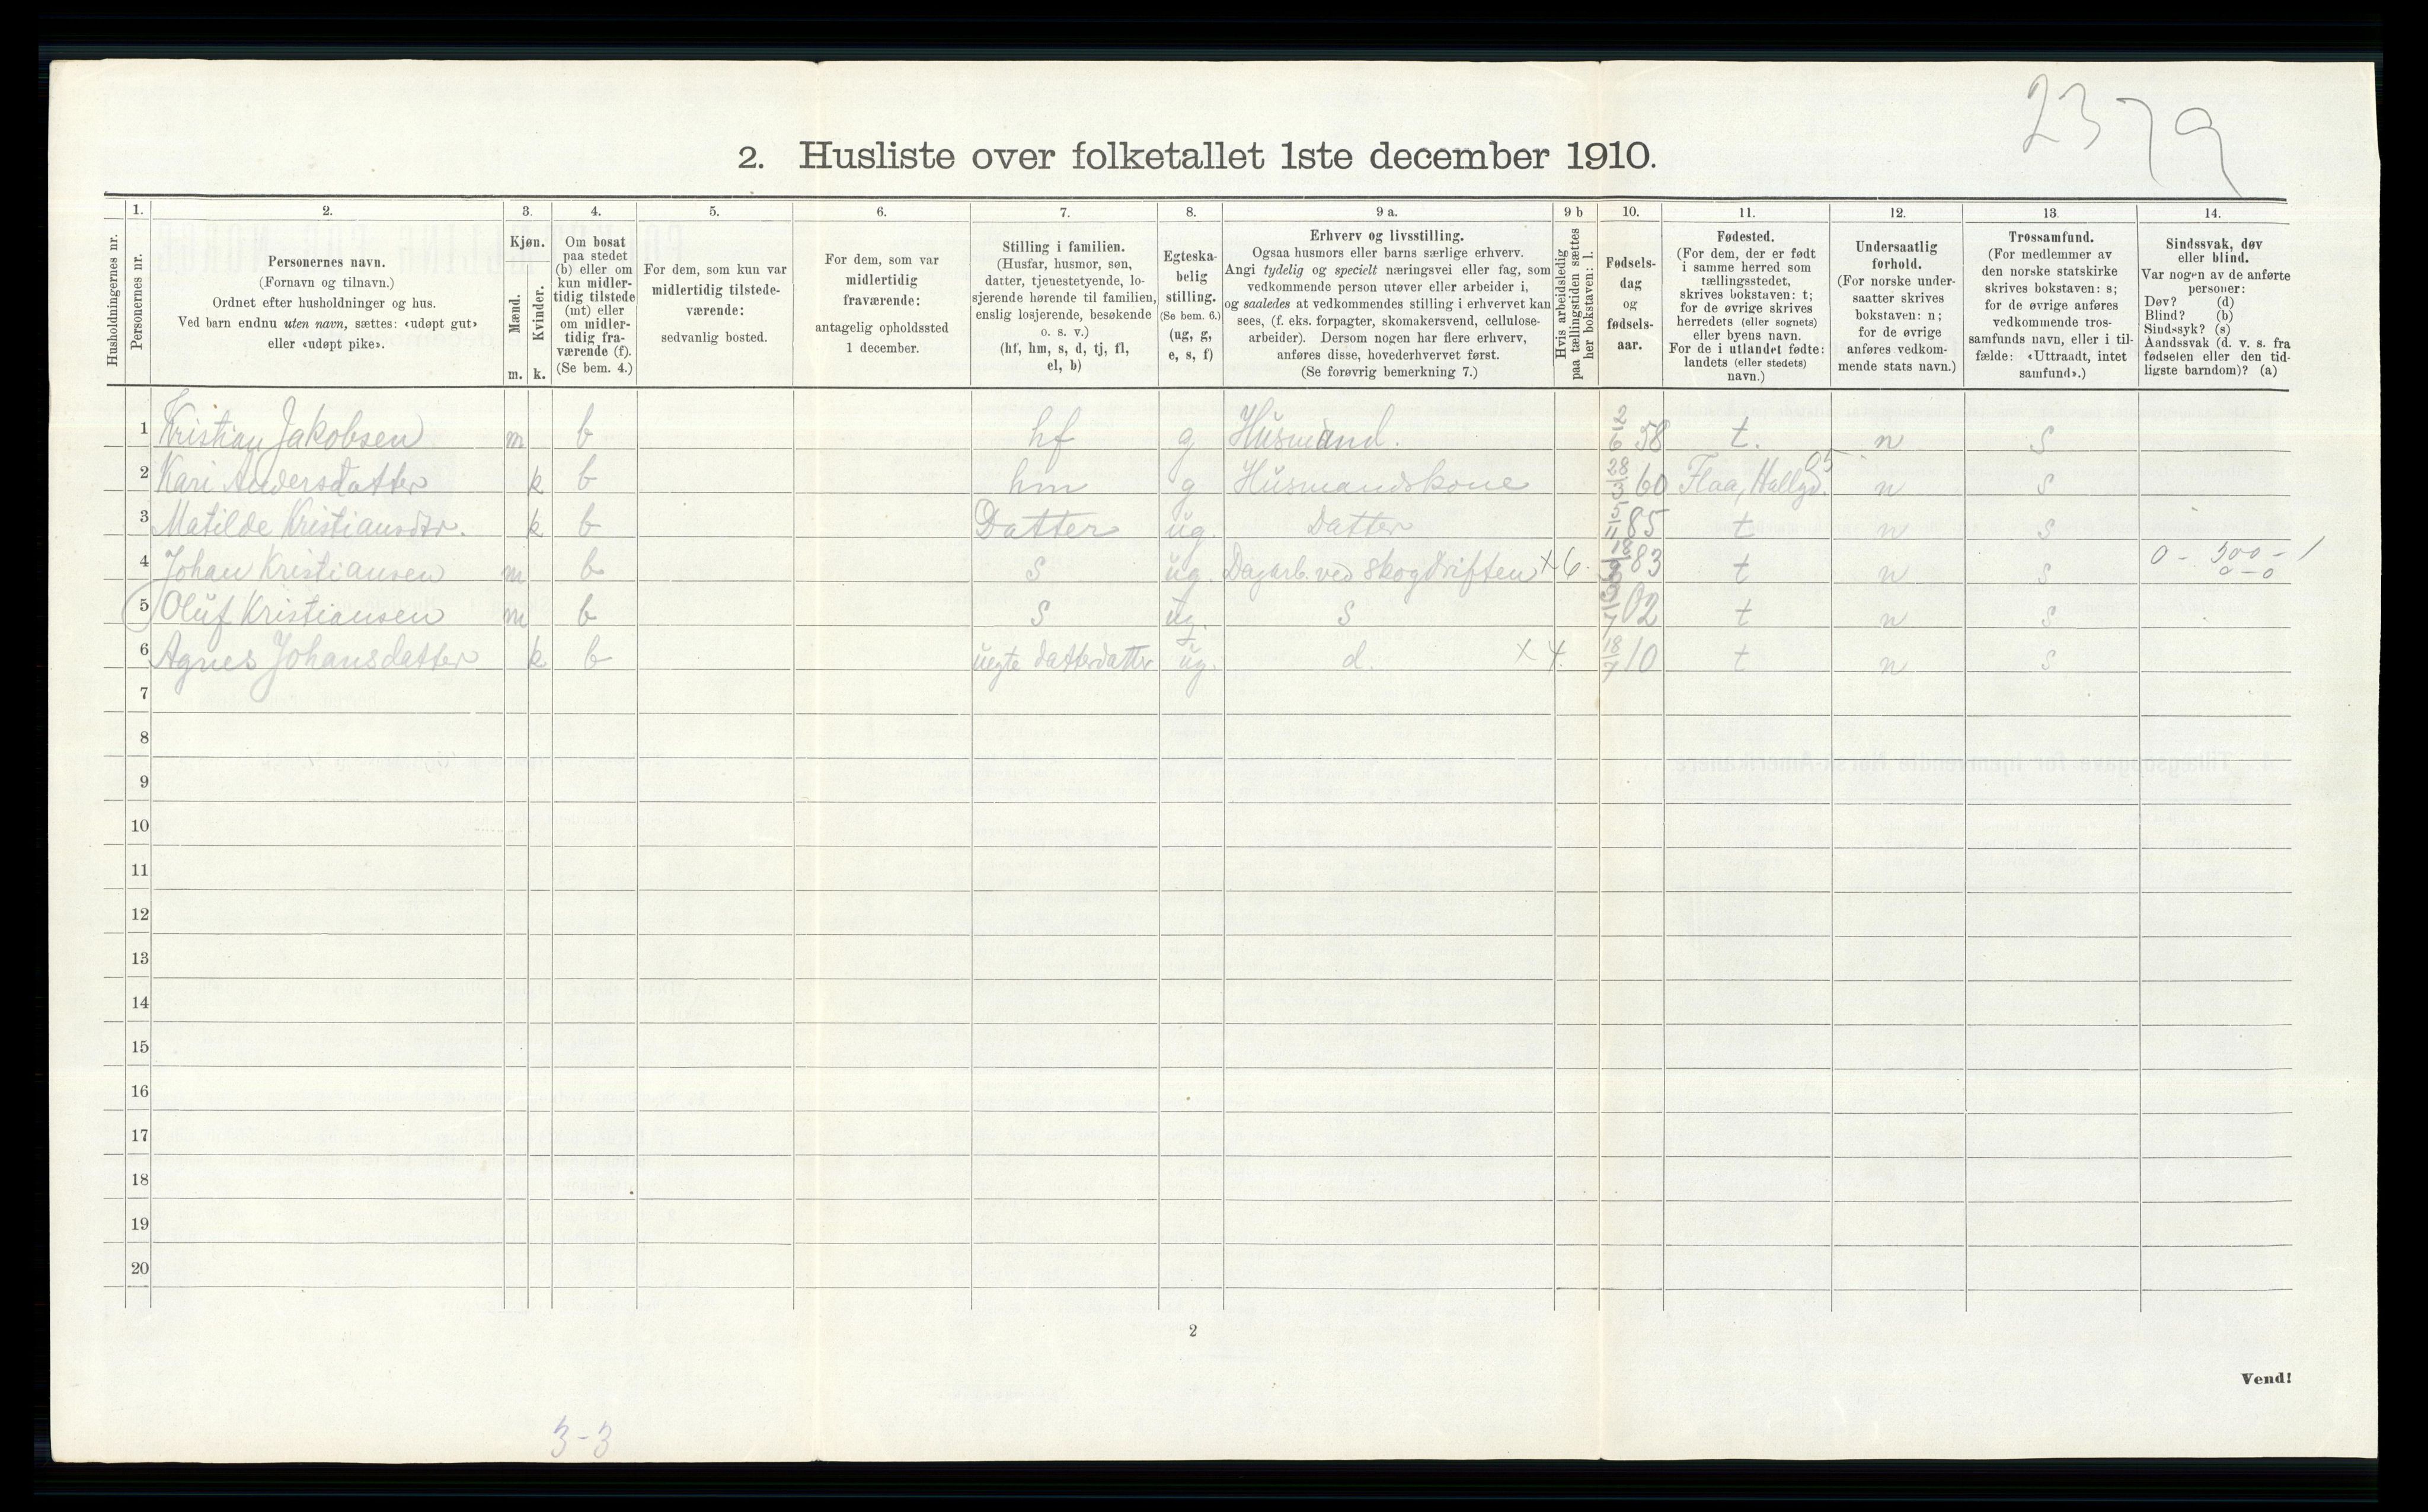 2379
2. Husliste over folketallet 1ste december 1910.
Husholdningernes nr.
1.
Personernes nr.
2.
Personernes navn.
(Fornavn og tilnavn.)
Ordnet efter husholdninger og hus.
Ved barn endnu uten navn, sættes: «udøpt gut»
eller «udøpt pike».
3.
Kjøn.
Mænd.
Kvinder.
m. k.
4.
Om bosat
paa stedet
(b) eller om
kun midler-
tidig tilstede
(mt) eller
om midler-
tidig fra-
værende (f).
(Se bem. 4.)
5.
For dem, som kun var
midlertidig tilstede-
værende:
sedvanlig bosted.
6.
For dem, som var
midlertidig
fraværende:
antagelig opholdssted
1 december.
7.
Stilling i familien.
(Husfar, husmor, søn,
datter, tjenestetyende, lo-
sjerende hørende til familien,
enslig losjerende, besøkende
o. s. v.)
(hf, hm, s, d, tj, fl,
el, b)
8.
Egteska-
belig
stilling.
(Se bem. 6.)
(ug, g,
e, s, f)
9 a.
Erhverv og livsstilling.
Ogsaa husmors eller barns særlige erhverv.
Angi tydelig og specielt næringsvei eller fag, som
vedkommende person utøver eller arbeider i,
og saaledes at vedkommendes stilling i erhvervet kan
sees, (f. eks. forpagter, skomakersvend, cellulose-
arbeider). Dersom nogen har flere erhverv,
anføres disse, hovederhvervet først.
(Se forøvrig bemerkning 7.)
9 b
Hvis arbeidsledig
paa tællingstiden sættes
her bokstaven: l.
10.
Fødsels-
dag
og
fødsels-
aar.
11.
Fødested.
(For dem, der er født
i samme herred som
tællingsstedet,
skrives bokstaven: t;
for de øvrige skrives
herredets (eller sognets)
eller byens navn.
For de i utlandet fødte:
landets (eller stedets)
navn.)
12.
Undersaatlig
forhold.
(For norske under-
saatter skrives
bokstaven: n;
for de øvrige
anføres vedkom-
mende stats navn.)
13
Trossamfund.
(For medlemmer av
den norske statskirke
skrives bokstaven: s;
for de øvrige anføres
vedkommende tros-
samfunds navn, eller i til-
fælde: «Uttraadt, intet
samfund».)
14.
Sindssvak, døv
eller blind.
Var nogen av de anførte
personer:
Døv? (d)
Blind? (b)
Sindssyk? (s)
Aandssvak (d. v. s. fra
fødselen eller den tid-
ligste barndom)? (a)
1 Kristian Jakobsen m b hf g Husmand. 2/6 58 t. n s
2 Kari Andersdatter k b hm g Husmandskone 28/3 60 Flaa, Hallgd. 05 n s
3 Matilde Kristiansdtr. k b Datter ug. Datter 5/11 85 t n s
4 Johan Kristiansen m b s ug. Dagarb. ved skogdriften x 6. 83 t n s 0 - 300 - 1
0 - 0
5 Oluf Kristiansen m b s ug. s 02 t n s
6 Agnes Johansdatter k b uegte datterdatter ug. d. x 4. 18/7 10 t n s
7
8
9
10
11
12
13
14
15
16
17
18
19
20
2
Vend!
3-3